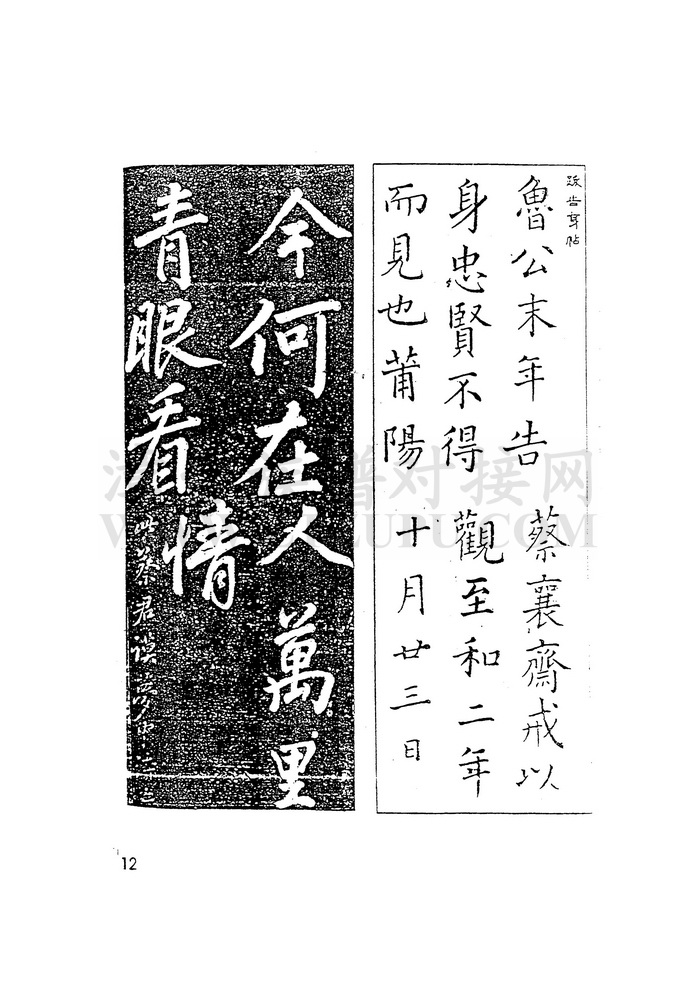 跋告身帖
魯公末年告
身忠賢不得
而見也莆陽
蔡襄齋戒以
觀至和二年
十月廿三日
今何在
青眼看
人萬里
情
此蔡君謨夢中
12
谱对接网